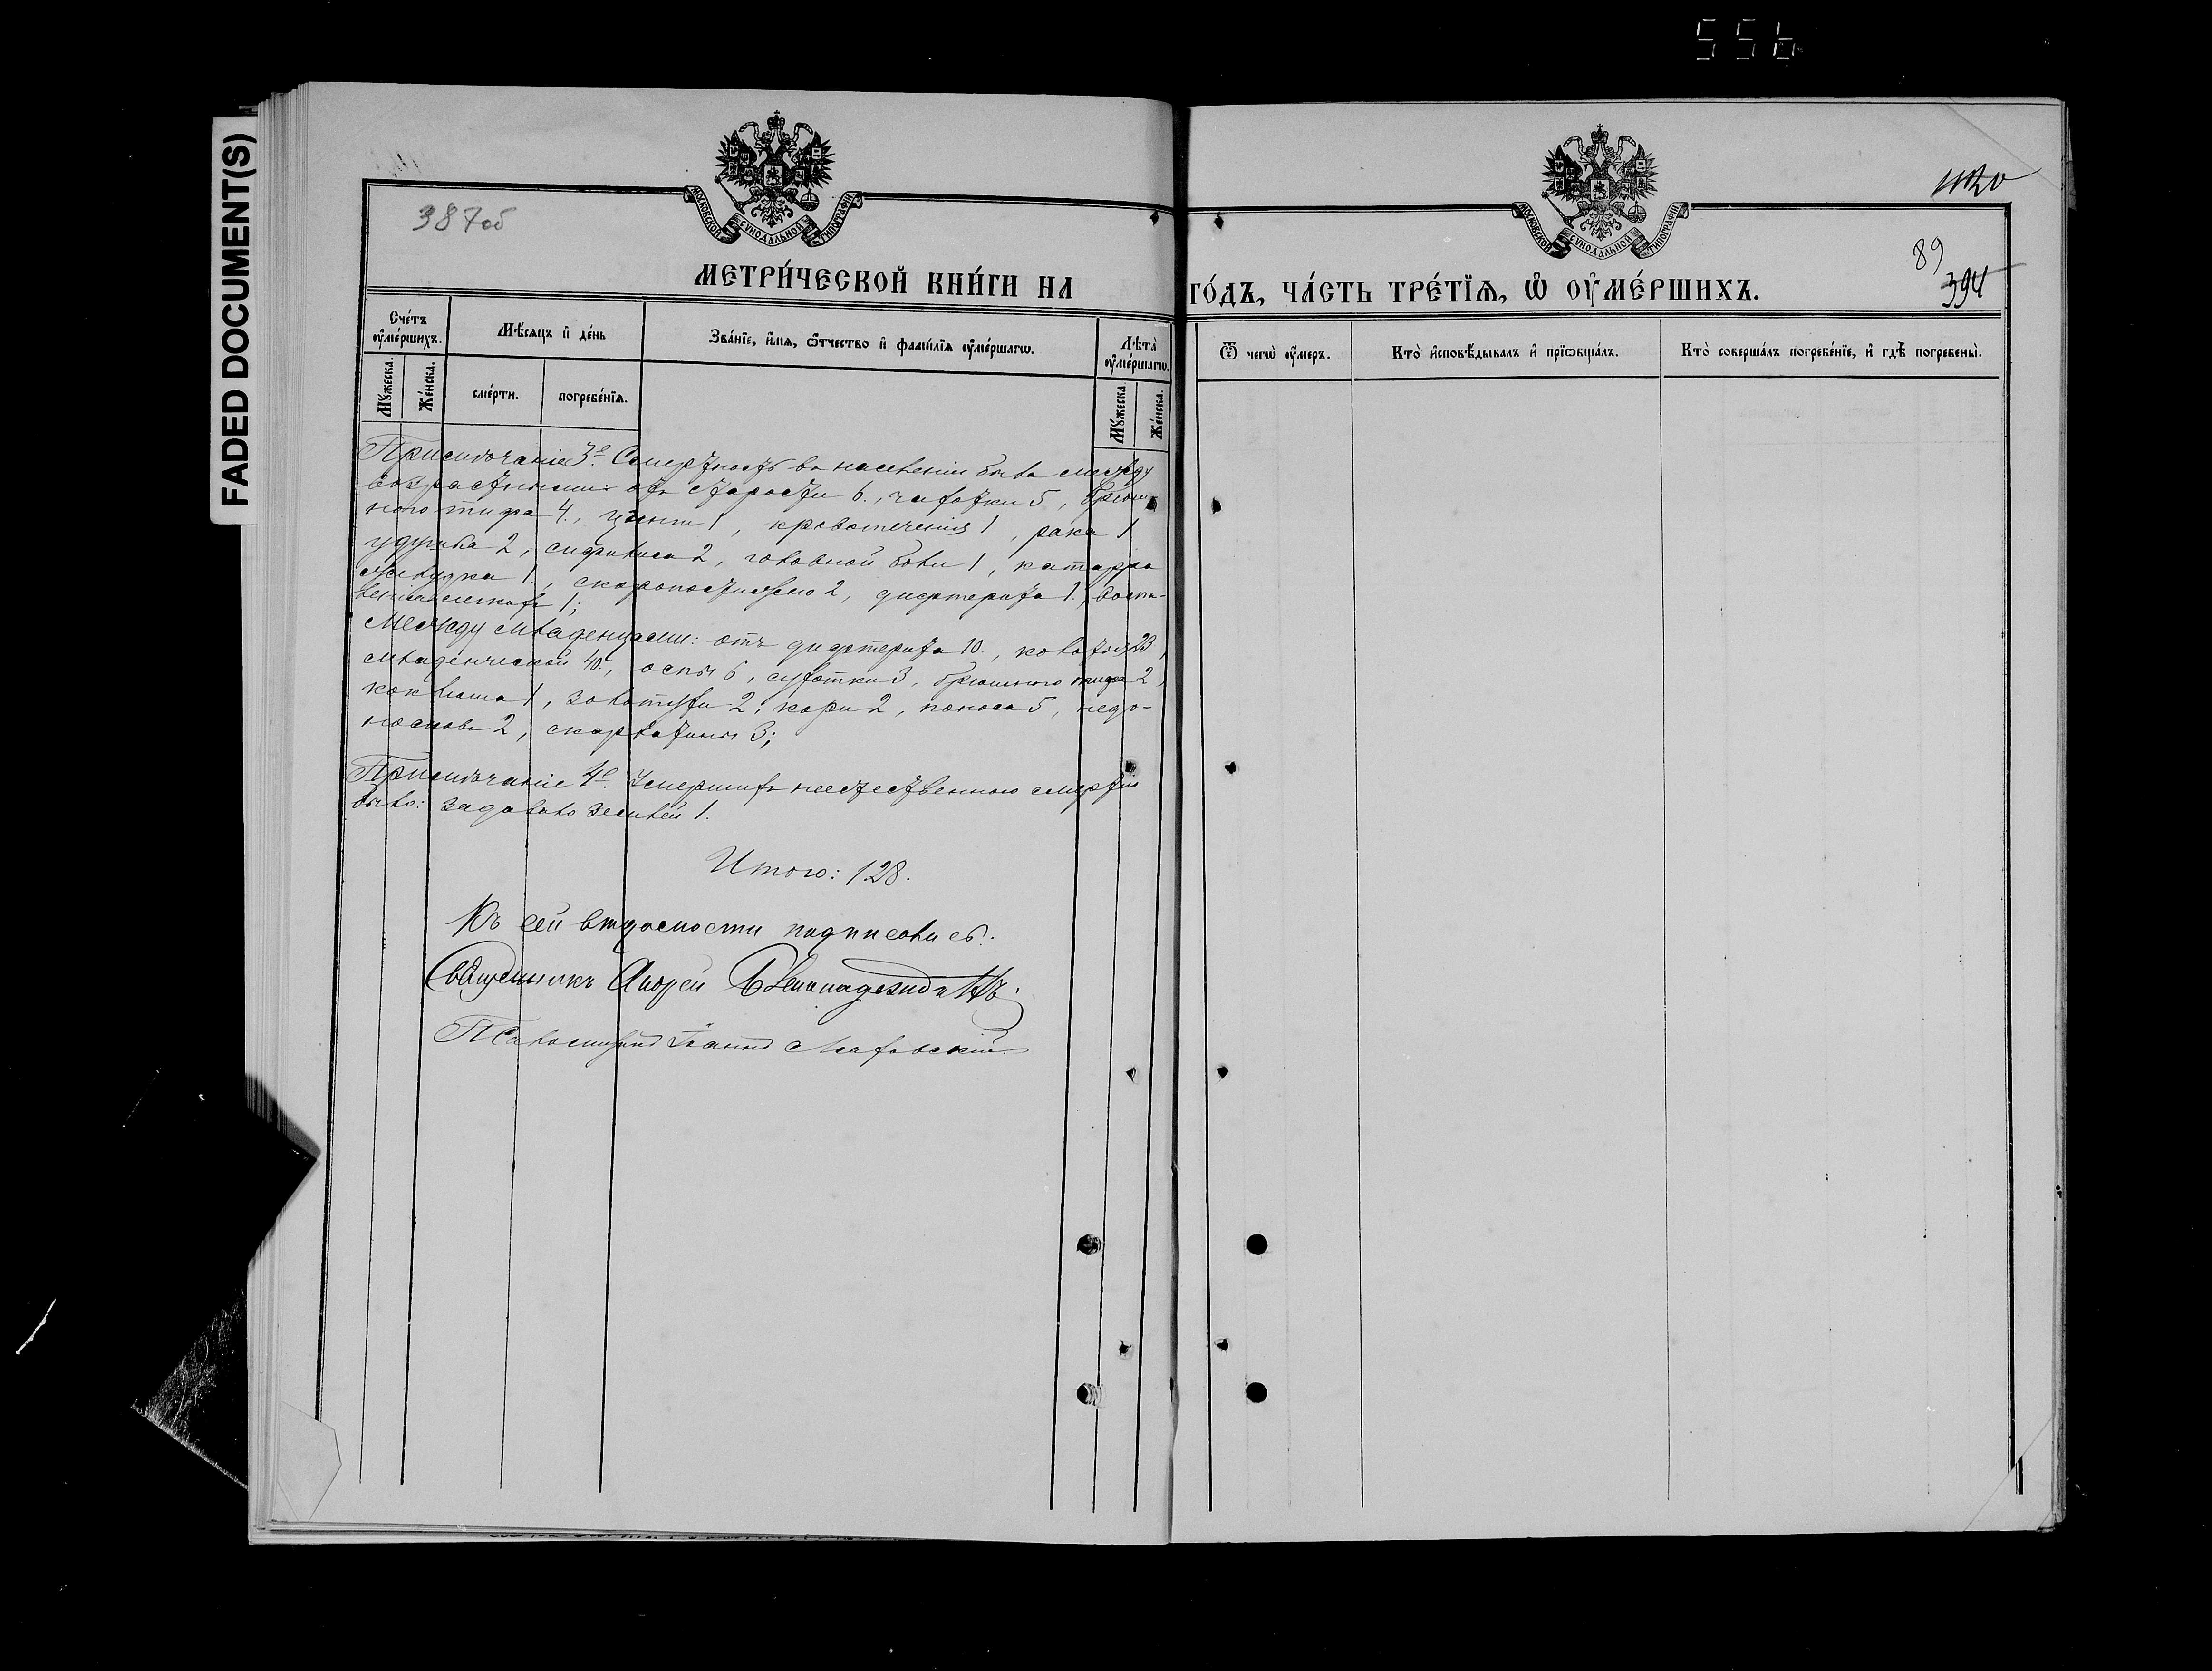 556
FADED DOCUMENT(S)
387об
МОСКОВСКОЙ СѴНОДАЛЬНОЙ ТИПОГРАФІИ
МОСКОВСКОЙ СѴНОДАЛЬНОЙ ТИПОГРАФІИ
89
394
МЕТРИ́ЧЕСКОЙ КНИ́ГИ НА
ГО́ДЪ, ЧА́СТЬ ТРЕ́ТЇѦ, Ѡ ОУМЕ́РШИХЪ.
Сче́тъ оуме́ршихъ.
Мѣ́сяцъ и де́нь
Зва́нїе, и́мѧ, ѻ҆́тчество и фами́лїѧ оуме́ршагѡ.
Лѣта̀ оуме́ршагѡ.
Ѿ чегѡ̀ оу́меръ.
Кто̀ и҆сповѣ́дывалъ и҆ прїѡбща́лъ.
Кто̀ соверша́лъ погребе́нїе, и҆ гдѣ̀ погребены̀.
Мꙋ́жеска.
Же́нска.
сме́рти.
погребе́нїѧ.
Мꙋ́жеска.
Же́нска.
Примѣчаніе 3е. Смертность въ населеніи была между
возрастными: отъ старости 6., чахотки 5, брюш-
ного тифа 4., цынги 1, кровотеченія 1, рака 1
удушья 2, сифилиса 2, головной боли 1, катарра
желудка 1., скоропостижно 2, дифтерита 1.,
1;
Между младенцами: отъ дифтерита 10., 23,
младенческой 40., оспы 6, сухотки 3, брюшного тифа 2,
коклюша 1, золотухи 2, кори 2, поноса 5, недо-
носковъ 2, скарлатины 3;
Примѣчаніе 4е. Умершихъ неестественною смертію
было: задавло землей 1.
Итого: 128.
Къ сей вѣдомости подписались:
Священникъ Андрей
Псаломщикъ Іоаннъ